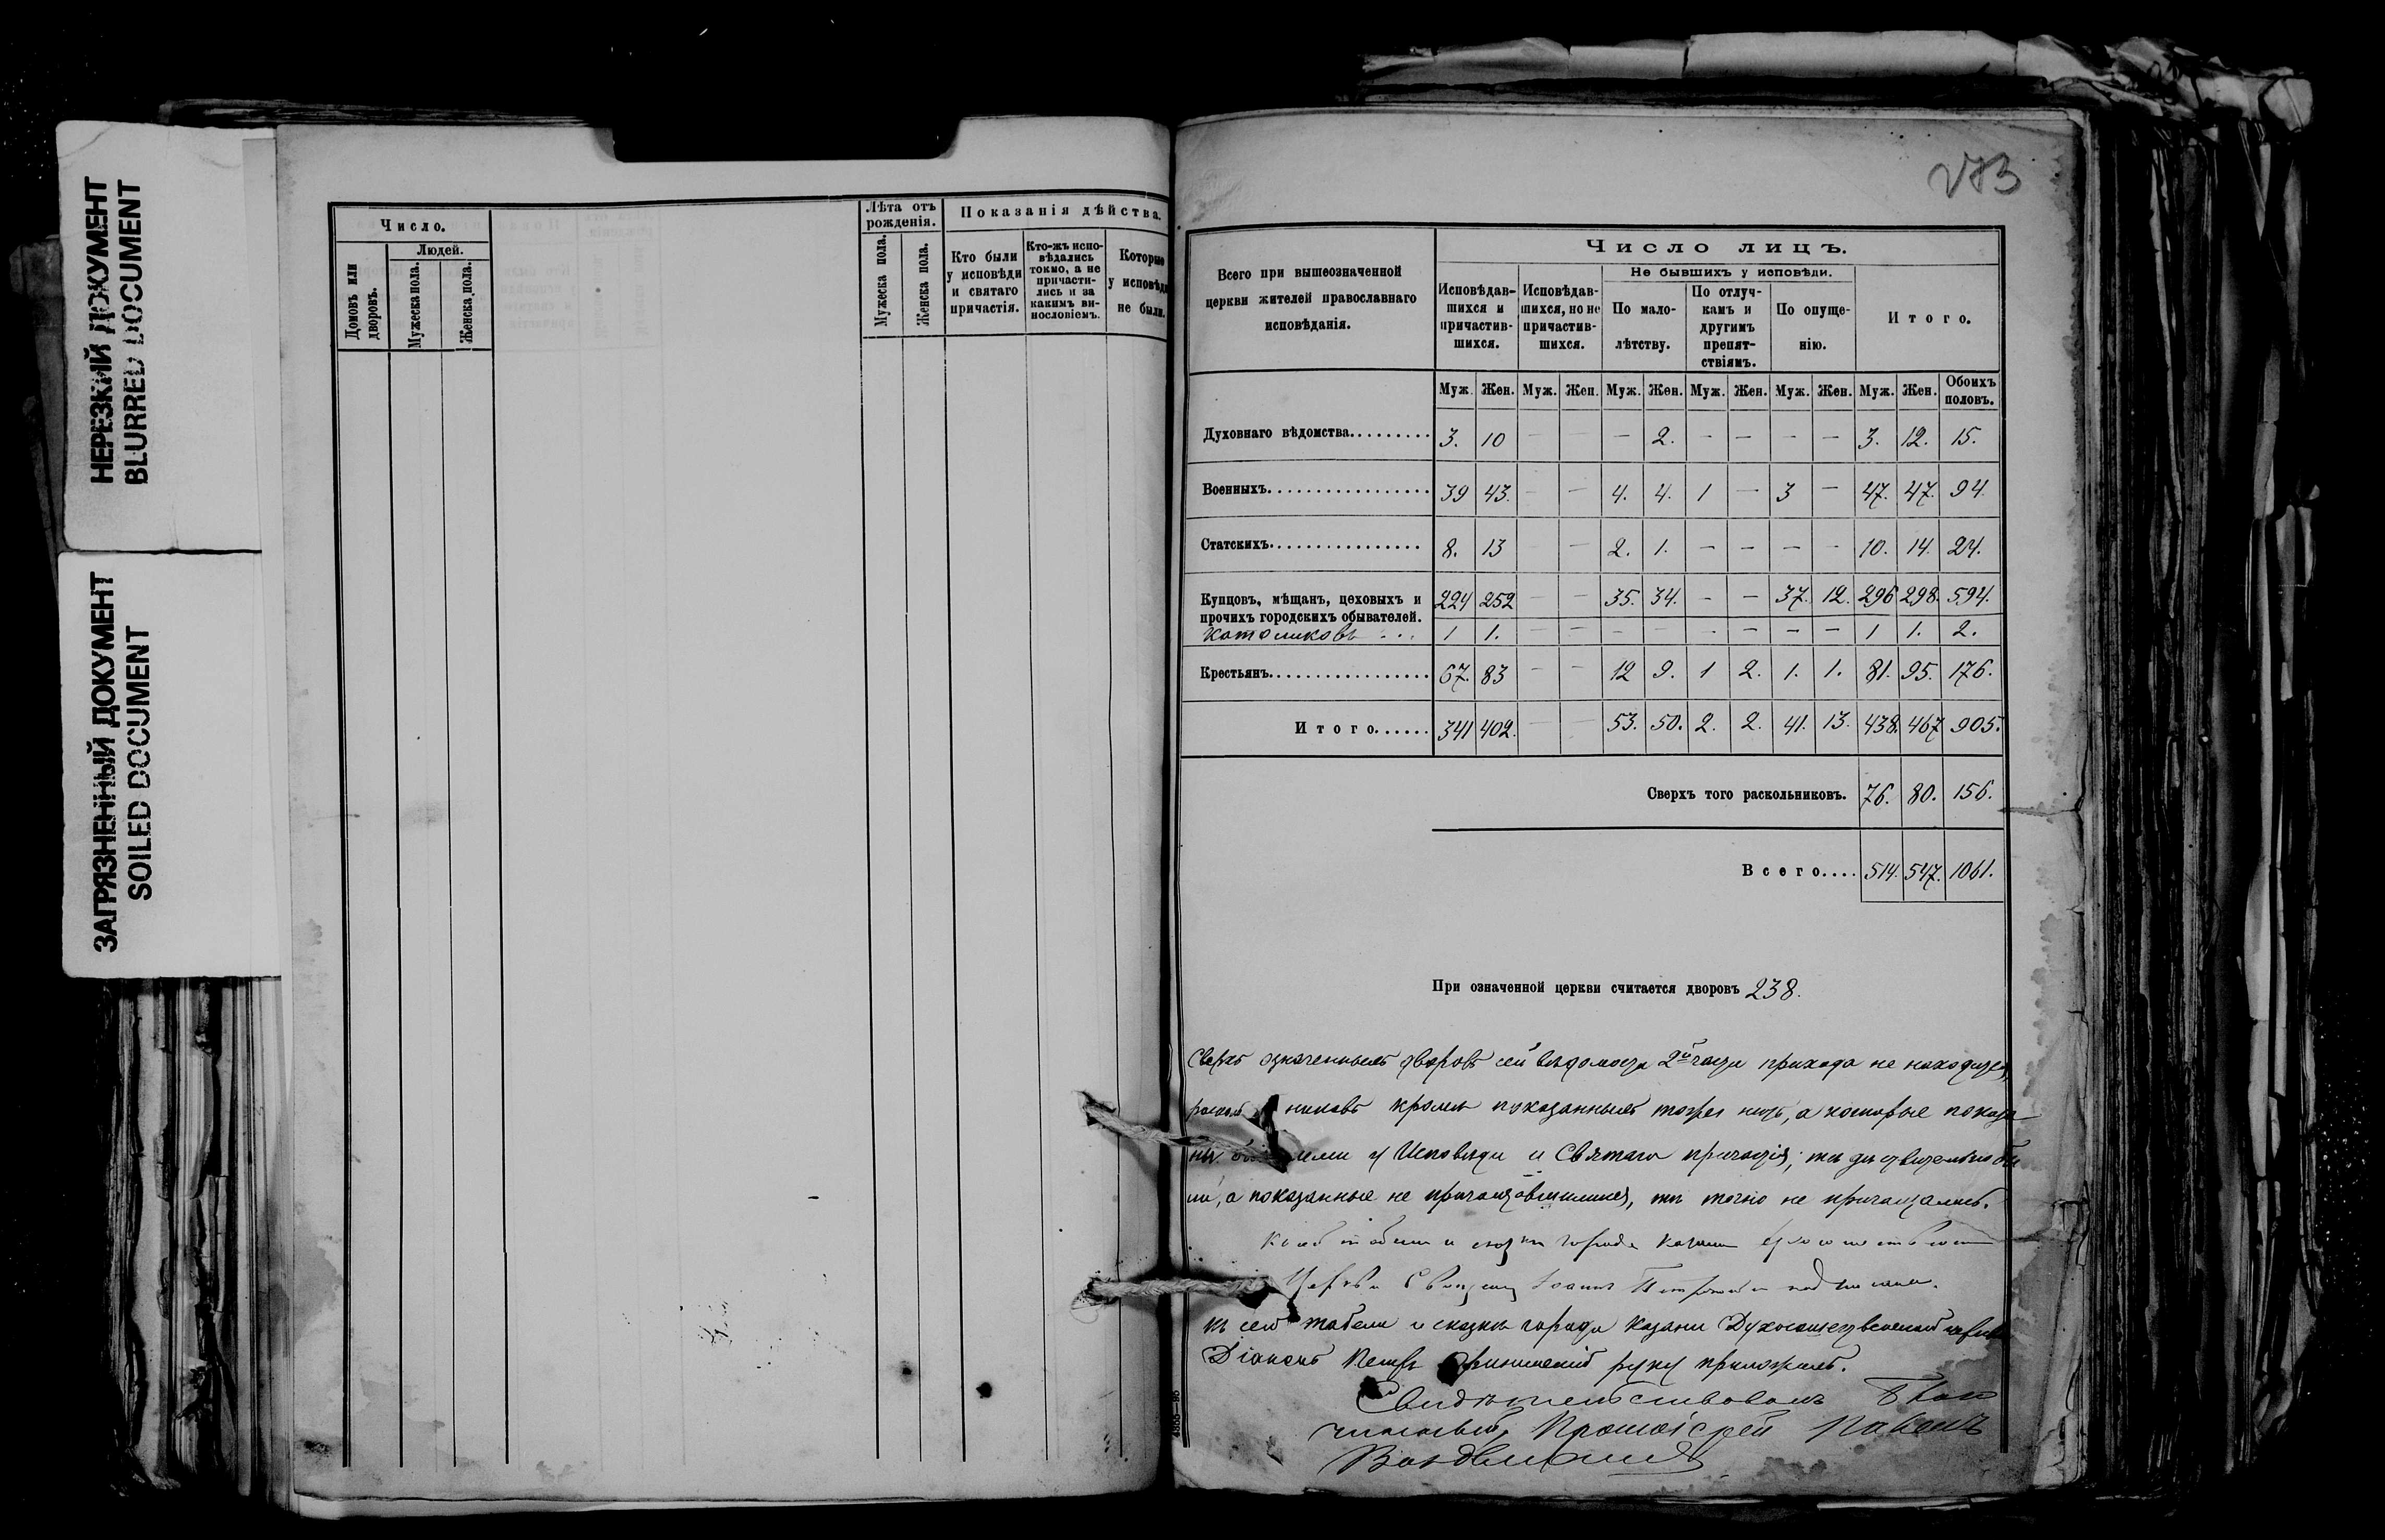 НЕРЕЗКИЙ ДОКУМЕНТ
BLURRED DOCUMENT
ЗАГРЯЗНЕННЫЙ ДОКУМЕНТ
SOILED DOCUMENT
Число.
Домовъ или дворовъ.
Людей.
Мужеска пола.
Женска пола.
Лѣта отъ рожденія.
Мужеска пола.
Женска пола.
Показанія дѣйства.
Кто были у исповѣди и святаго причастія.
Кто-жъ исповѣдались токмо, а не причастились и за какимъ винословіемъ.
Которые у исповѣди не были.
273
Всего при вышеозначенной церкви жителей православнаго исповѣданія.
Число лицъ.
Исповѣдавшихся и причастившихся.
Исповѣдавшихся, но не причастившихся.
Не бывшихъ у исповѣди.
По малолѣтству.
По отлучкамъ и другимъ препятствіямъ.
По опущенію.
Итого.
Муж. Жен. Муж. Жен. Муж. Жен. Муж. Жен. Муж. Жен. Муж. Жен. Обоихъ половъ.
Духовнаго вѣдомства......... 3. 10 — — — 2. — — — — 3. 12. 15.
Военныхъ.................. 39 43. — — 4. 4. 1 — 3 — 47. 47. 94.
Статскихъ................ 8. 13 — — 2. 1. — — — — 10. 14. 24.
Купцовъ, мѣщанъ, цеховыхъ и прочихъ городскихъ обывателей. 224 252 — — 35. 34. — — 37. 12. 296 298. 594.
Католиковъ ... 1 1. — — — — — — — — 1 1. 2.
Крестьянъ.................. 67. 83 — — 12 9. 1 2. 1. 1. 81. 95. 176.
Итого...... 341 402. — — 53. 50. 2. 2. 41. 13. 438. 467 905.
Сверхъ того раскольниковъ. 76. 80. 156.
Всего.... 514. 547. 1061.
При означенной церкви считается дворовъ 238.
Сверхъ означенныхъ дворовъ сей вѣдомости 2й части прихода не находится,
никовъ кромѣ показанныхъ тоже нѣтъ, а которые показа-
ны у Исповѣди и Святаго причастія, тѣ дѣйствительно бы
ли, а показанные не причащавшимися, тѣ точно не причащались.
Къ сей табели и сказкѣ города Казани
Церкви Священ Іоаннъ
Къ сей табели и сказкѣ города Казани Духосошественской церкви
Діаконъ Петръ руку приложилъ.
Свидѣтельствовалъ Благо
чинный, Протоіерей Павелъ
4886—96